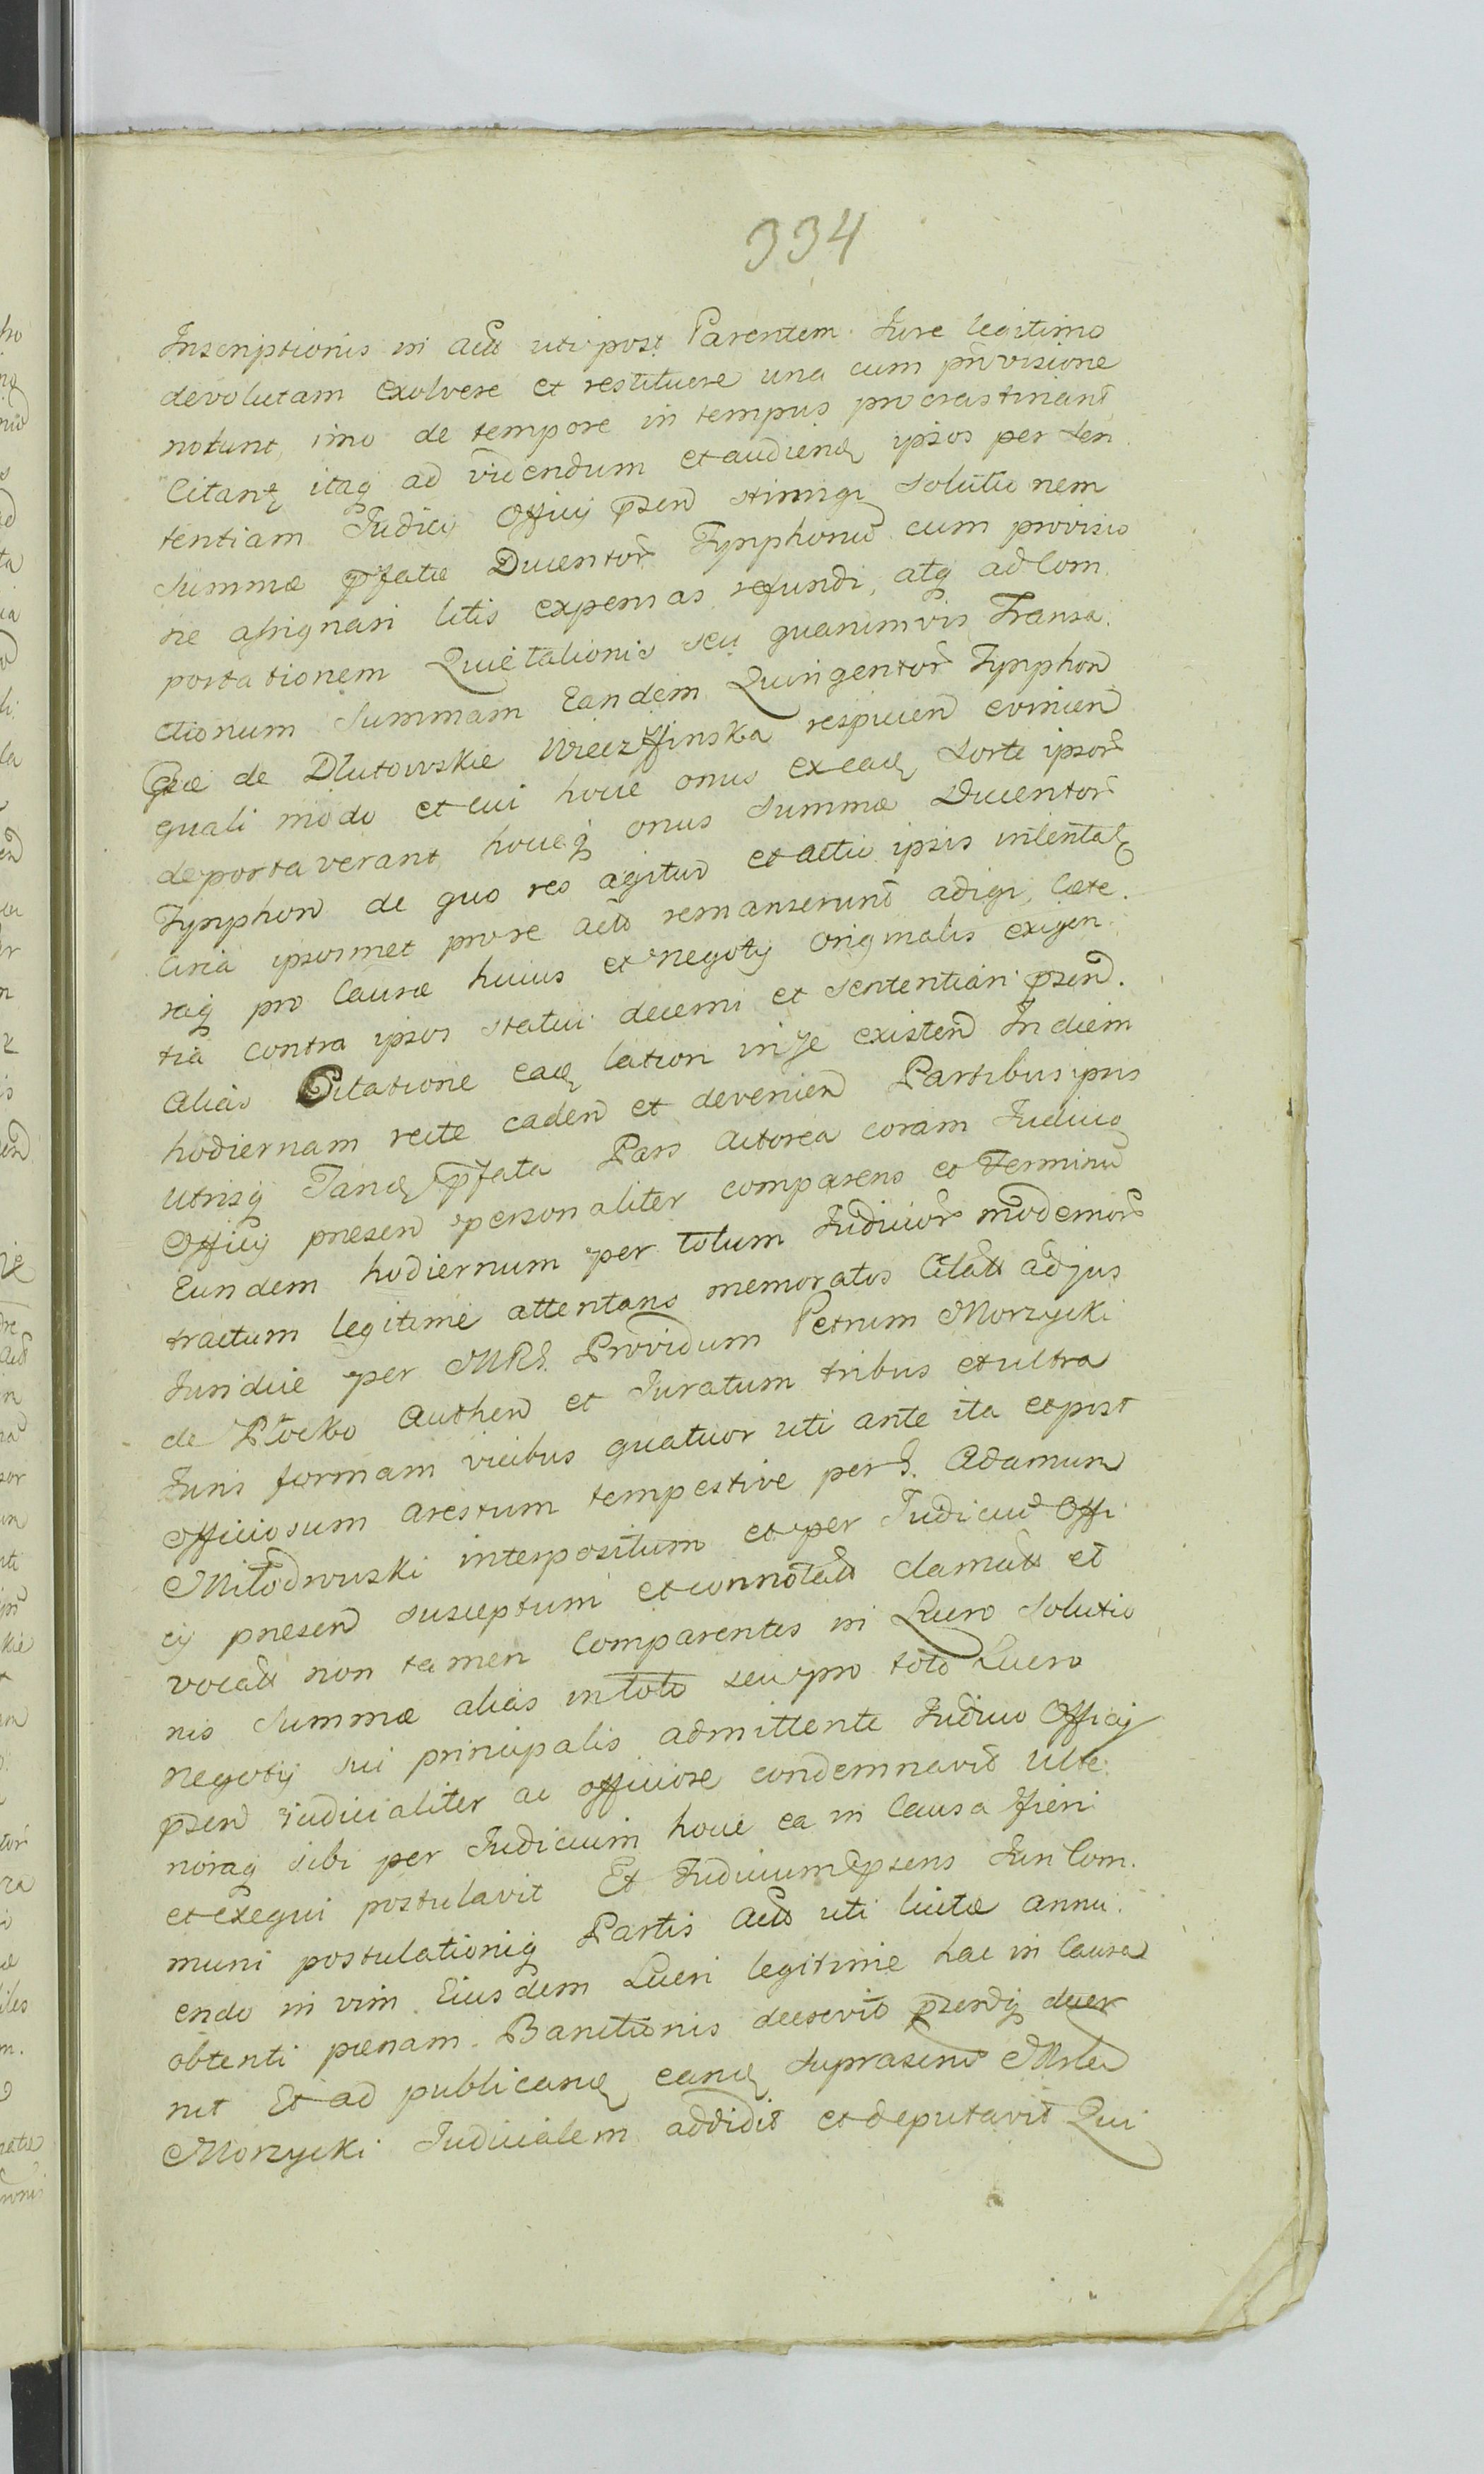 334
Inscriptionis in actt uti post Parentem Jure legitimo
devolutam exolvere et restituere una cum provisione
nolunt, imo de tempore in tempus procrastinant,
Citantq itaq ad videndum et audiendq ipsos per Sen
tentiam Judicy Officy pszen stringi solutionem
Summæ pfatæ Ducentor Tynphonu cum provisio
ne assignari litis expensas refundi, atq ad Com
portationem Quietationis seu quarumvis Transa
ctionum Summam Eandem Quingentor Tynphon
Gsæ de Dlutowskie respicien evinien
quali modo et cui hocce onus ex eadq Sorte ipsor
deportaverant hocceq onus Summæ Ducentor
Tynphon de quo res agitur et actio ipsis intentatq
Circa ipsosmet prose actt remanserunt adigi, Cæte
raq pro Causæ huius et negoty originalis exigen
tia contra ipsos statui decerni et sententiari pszen.
Alias Citatione eadq lation in se existen In diem
hodiernam recte caden et devenien Partibus ipsis
utrisq Tandq pfata Pars Actorea coram Judicio
Officy præsen personaliter comparens et Terminu
Eundem hodiernum per totum Judicior modernor
tractum legitime attentans memoratos Citatt ad jus
Juridice per MRS. Providum Petrum Morzycki
de Płocko Authen et Juratum tribus et ultra
Juris formam vicibus quatuor uti ante ita et post
Officiosum arestum tempestive per S. Adamum
Miłodrowski interpositum et per Judiciu Offi
cy præsen susceptum et connotatt clamatt et
vocatt non tamen Comparentes in Lucro Solutio
nis Summæ alias in toto seu pro toto Lucro
negoty sui principalis admittente Judicio Officy
pszen judicialiter ac officiose condemnavit Ulte
rioraq sibi per Judicium hocce ea in Causa fieri
et exequi postulavit Et Judicium psens Juri Com
muni postulationiq Partis Actt uti licitæ annu
endo in vim Eiusdem Lucri legitime hac in Causa
obtenti pænam Banitionis decrevit pszendq decer
nit Et ad publicandq eandq suprascri Mrlem
Morzycki Judicialem addidit et deputavit Qui